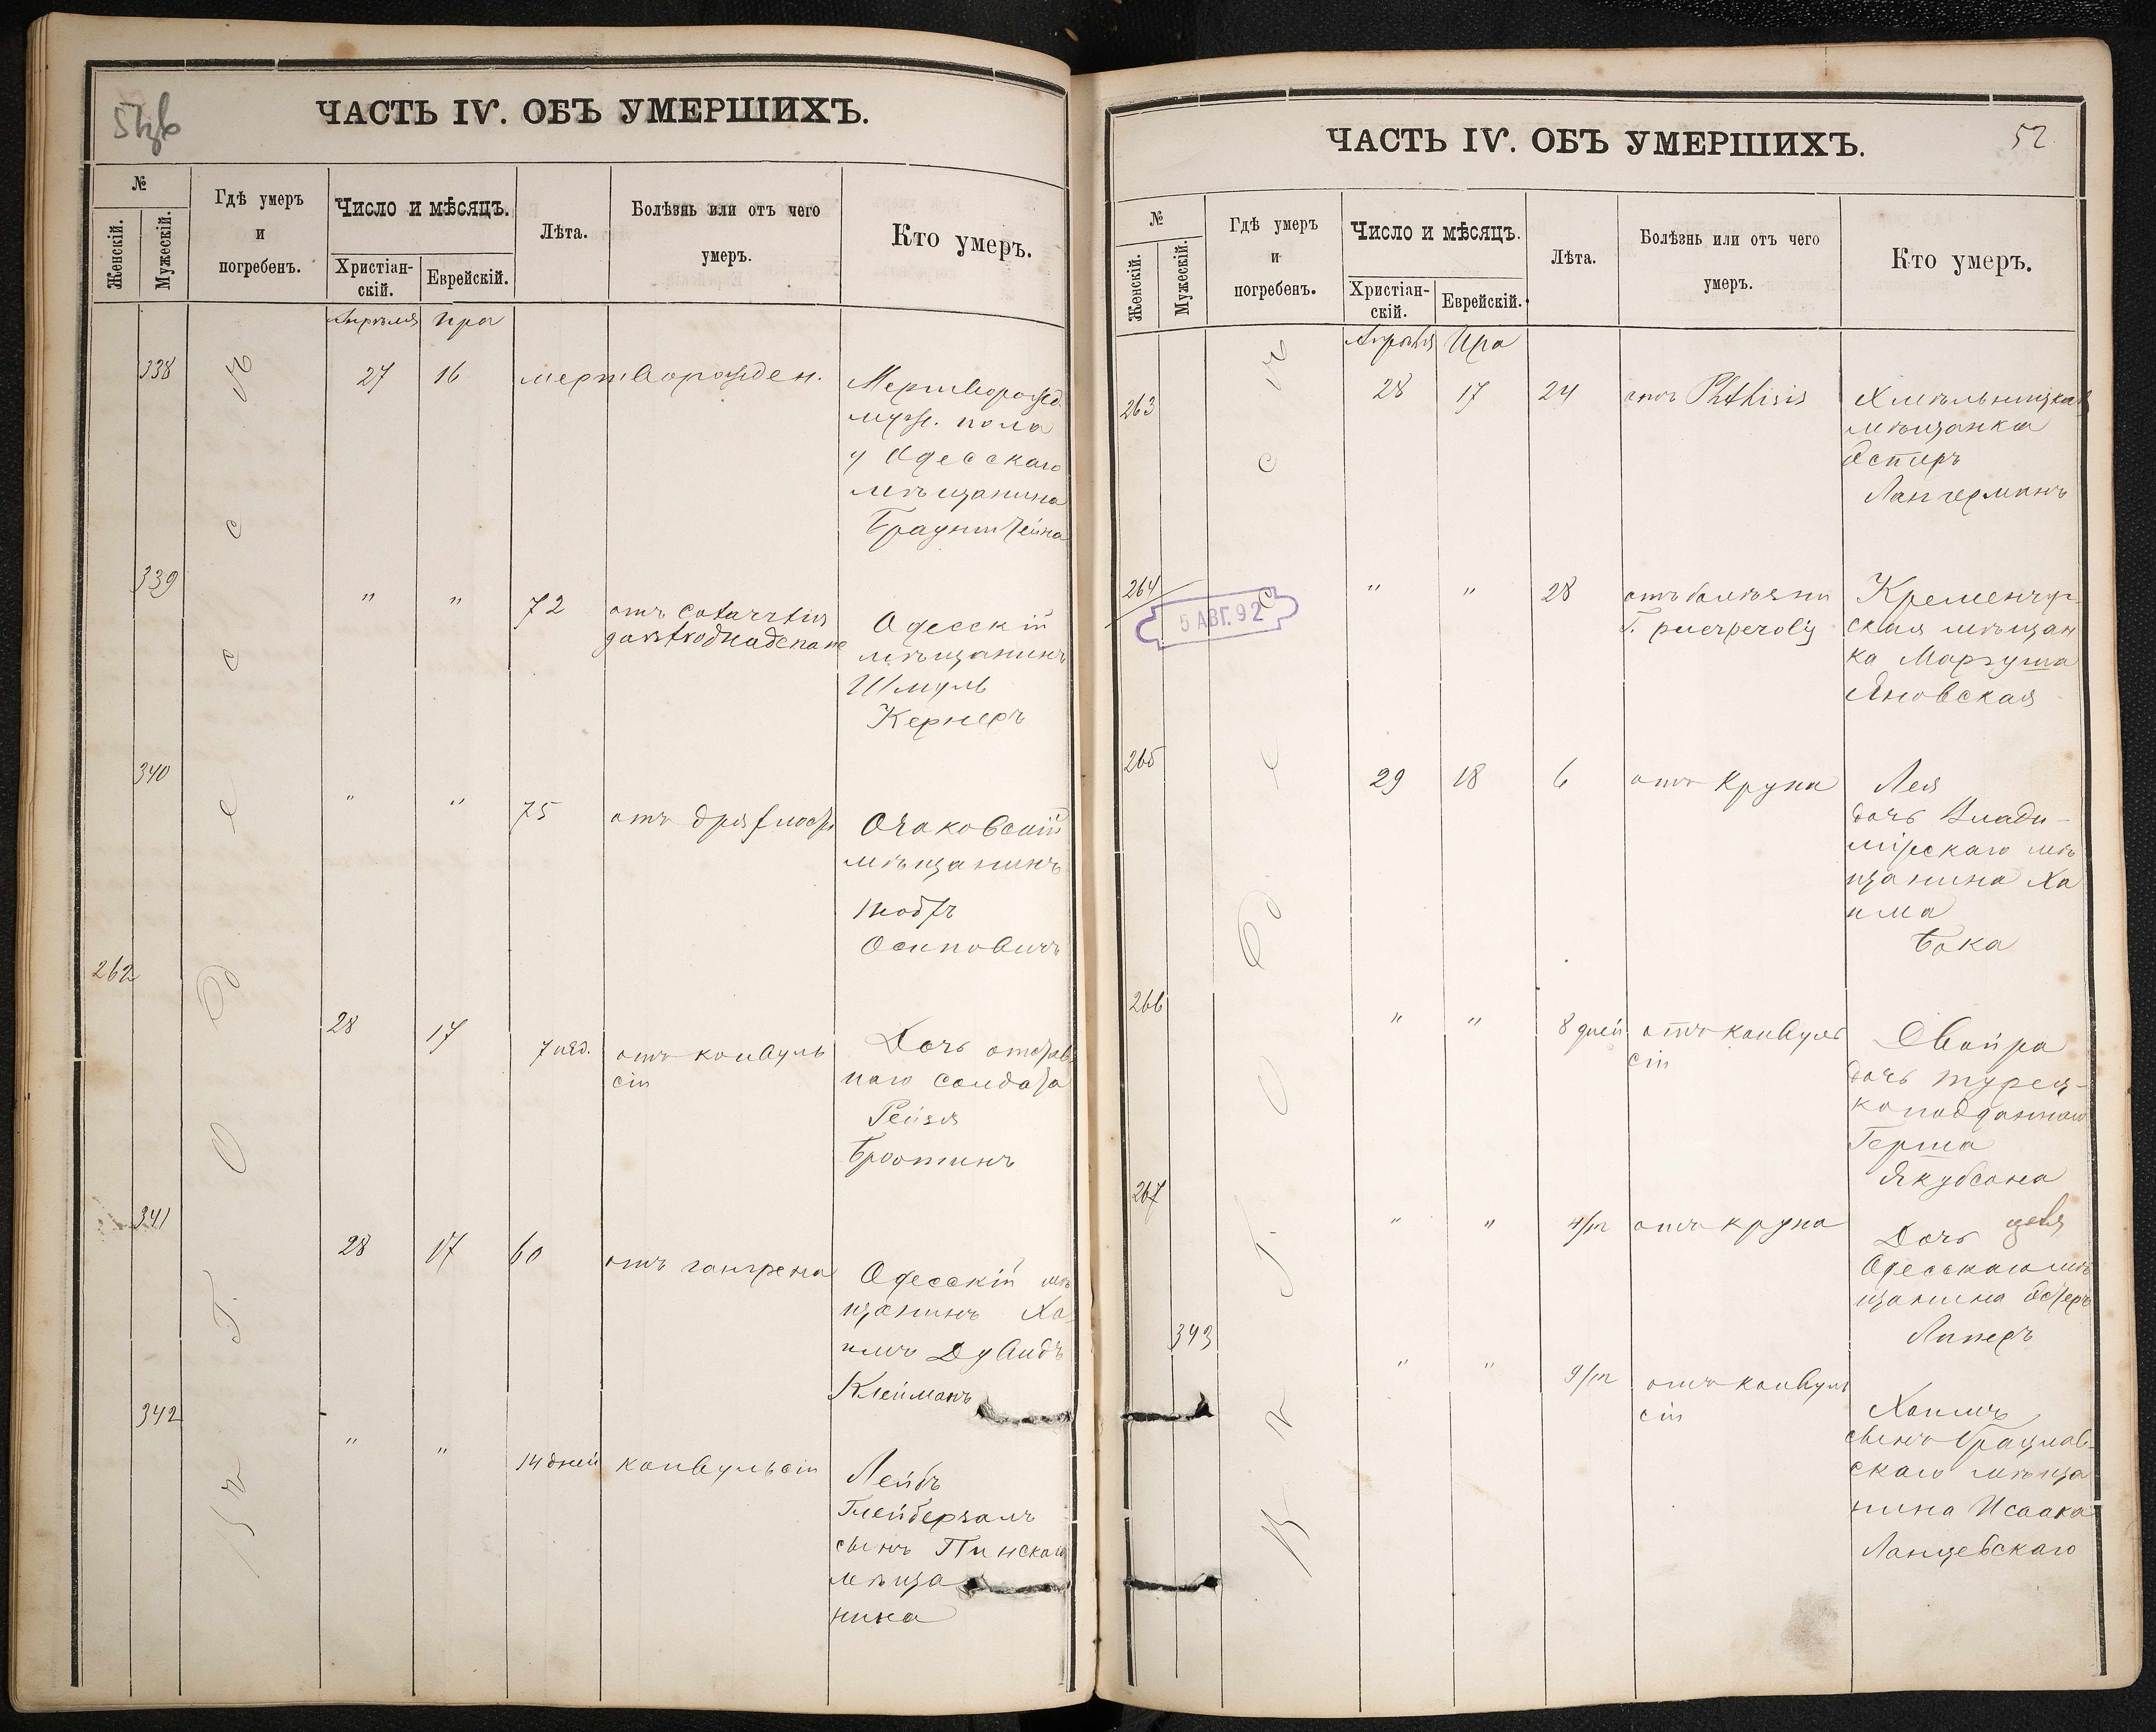 ЧАСТЬ IV. ОБЪ УМЕРШИХЪ.
№
Женскій.
Мужескій.
Гдѣ умеръ
и
погребенъ.
Число и мѣсяцъ.
Христіан-
скій.
Еврейскій.
Лѣта.
Болѣзнь или отъ чего
умеръ.
Кто умеръ.
Апрѣля Ира
338
27 16 мертворожден.
Мертворожд.
муж. пола
у Одесскаго
мѣщанина
339
" " 72
отъ
Одесскій
мѣщанинъ
Шмуль
Кернеръ
340
" " 75 отъ дряхлости
Очаковскій
мѣщанинъ
Осиповичъ
262
28 17 7 нед. отъ конвуль
сій
Дочь отстав
наго солдата
Рейзя
341
28 17 60 отъ гангрена
Одесскій мѣ
щанинъ Ха
имъ Дувидъ
Клейманъ
342
" " 14 дней конвульсій
Лейбъ
сынъ Пинскаго
мѣща
нина
Въ Г. Одессѣ
ЧАСТЬ IV. ОБЪ УМЕРШИХЪ.
52
№
Женскій.
Мужескій.
Гдѣ умеръ
и
погребенъ.
Число и мѣсяцъ.
Христіан-
скій.
Еврейскій.
Лѣта.
Болѣзнь или отъ чего
умеръ.
Кто умеръ.
Апрѣля Ира
263
28 17 24 отъ Phthisis
Хмѣльницкая
мѣщанка
Эстеръ
Лангерманъ
264
5 АВГ. 92
" " 28 отъ болѣзни
Кременчуг
ская мѣщан
ка
Яновская
265
29 18 6 отъ крупа
Лея
дочь Влади-
мірскаго мѣ
щанина Ха
има
Бока
266
" " 8 дней отъ конвуль
сій
Двойра
дочь турец-
коподданнаго
Герша
Якубсона
267
" " 4/м отъ крупа
Дочь Цевя
Одесскаго мѣ
щанина
Липеръ
343
" " 9/м отъ конвуль
сій
Хаимъ
сынъ Брацлав-
скаго мѣща
нина Исаака
Ланцевскаго
Въ Г. Одессѣ